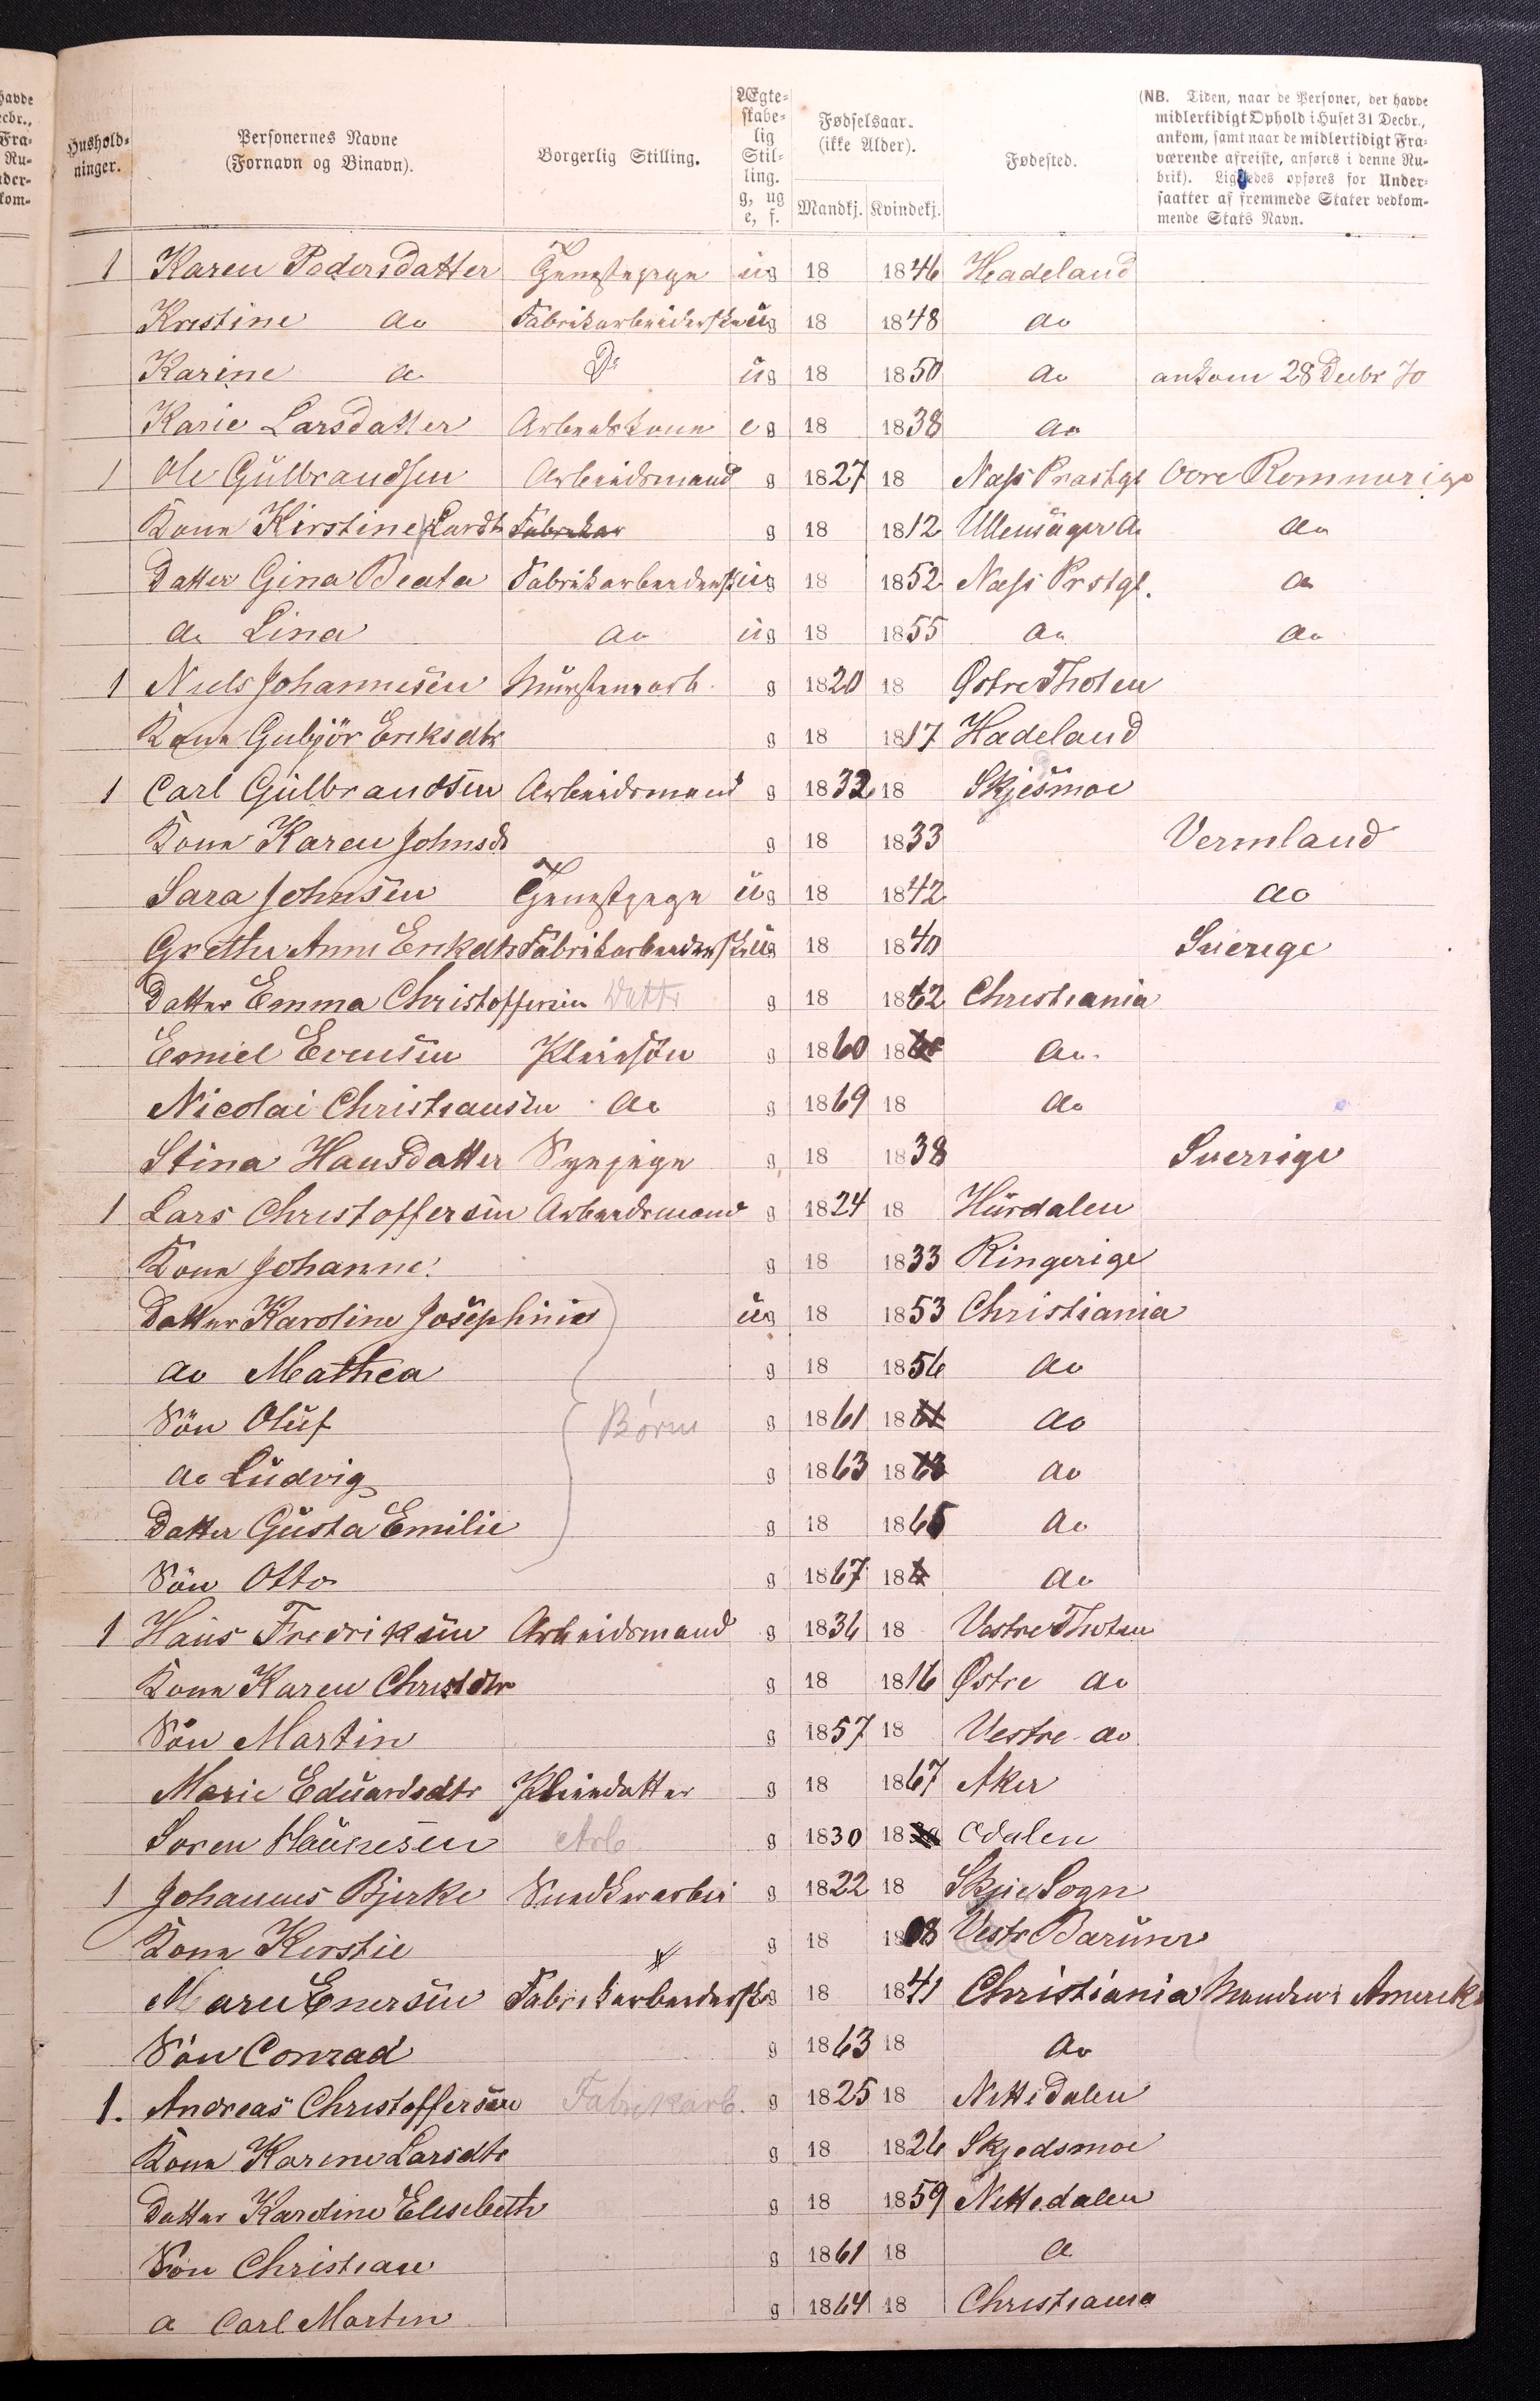 havde
ecbr.,
Fra-
Ru-
der-
kom-
Hushold-
ninger.
Personernes Navne
(Fornavn og Binavn).
Borgerlig Stilling.
Ægte-
skabe-
lig
Stil-
ling.
g, ug
e, f.
Fødselsaar.
(ikke Alder).
Mandkj. Kvindekj.
Fødested.
(NB. Tiden, naar de Personer, der havde
midlertidigt Ophold i Huset 31 Decbr.,
ankom, samt naar de midlertidigt Fra-
værende afreiste, anføres i denne Ru-
brik). Ligeledes opføres for Under-
saatter af fremmede Stater vedkom-
mende Stats Navn.
1 Karen Pedersdatter Tjenestepige ug 18 1846 Headeland
Krestine do Fabrikarbeiderske ug 18 1848 do
Karine do Do ug 18 1850 do ankom 28 Decbr 70
Karie Larsdatter Arbeidskone eg 18 1838 do
1 Ole Gulbrandsen Arbeidsmand g 1827 18 Næss Prestgl Øvre Rommerige
Kone Kirstine Larsdt Fabrikar g 18 1812 Ullensager do do
Datter Gina Beata Fabrikarbeiderske ug 18 1852 Næss Prstgl. do
do Lina do ug 18 1855 do do
1 Niels Johannesen Mursteensarb. g 1820 18 Østre Thoten
Kone Gubjør Eriksdtr g 18 1817 Hadeland
1 Carl Gulbrandsen Arbeidsmand g 1832 18 Skjesmoe
Kone Karen Johnsd g 18 1833 Vermland
Sara Johnsen Tjenestpige ug 18 1842 do
Grethe Anne Erikdtr Fabrikarbeiderske ug 18 1840 Sverige
Datter Emma Christoffersen Datter g 18 1862 Christiania
Emiel Evensen Pleiesøn g 1860 18 do.
Nicolai Christiansen do g 1869 18 do
Stina Hansdatter Sypige g 18 1838 Sverrige
1 Lars Christoffersen Arbeidsmand g 1824 18 Hurdalen
Kone Johanne. g 18 1833 Ringerige
Datter Karoline Josephine ug 18 1853 Christiania
do Mathea g 18 1856 do
Søn Oluf Børn g 1861 1861 do
do Ludvig g 1863 1863 do
Datter Gusta Emilie g 18 1865 do
Søn Otto g 1867 186 do
1 Hans Fredriksen Arbeidsmand g 1836 18 Vestre Thoten
Kone Karen Christdtr g 18 1816 Østre do
Søn Martin g 1857 18 Vestre do
Marie Eduardsdtr Pleiedatter g 18 1867 Aker
Soren Haunesen Arb g 1830 1830 Odalen
1 Johannes Bjerke Snedkerarbei g 1822 18 Skjie Sogn
Kone Kerstie g 18 1808 Vestr Barumr
Maren Enersen Fabrikarbeiderske g 18 1841 Christiania Manden i Amerika
Søn Conrad g 1863 18 do
1. Andreas Christoffersen Fabrikarb. g 1825 18 Nittedalen
Kone Karine Larsdtr g 18 1826 Skjedsmoe
Datter Karoline Elesebeth g 18 1859 Nittedalen
Søn Christian g 1861 18 do
do Carl Martin g 1864 18 Christiania